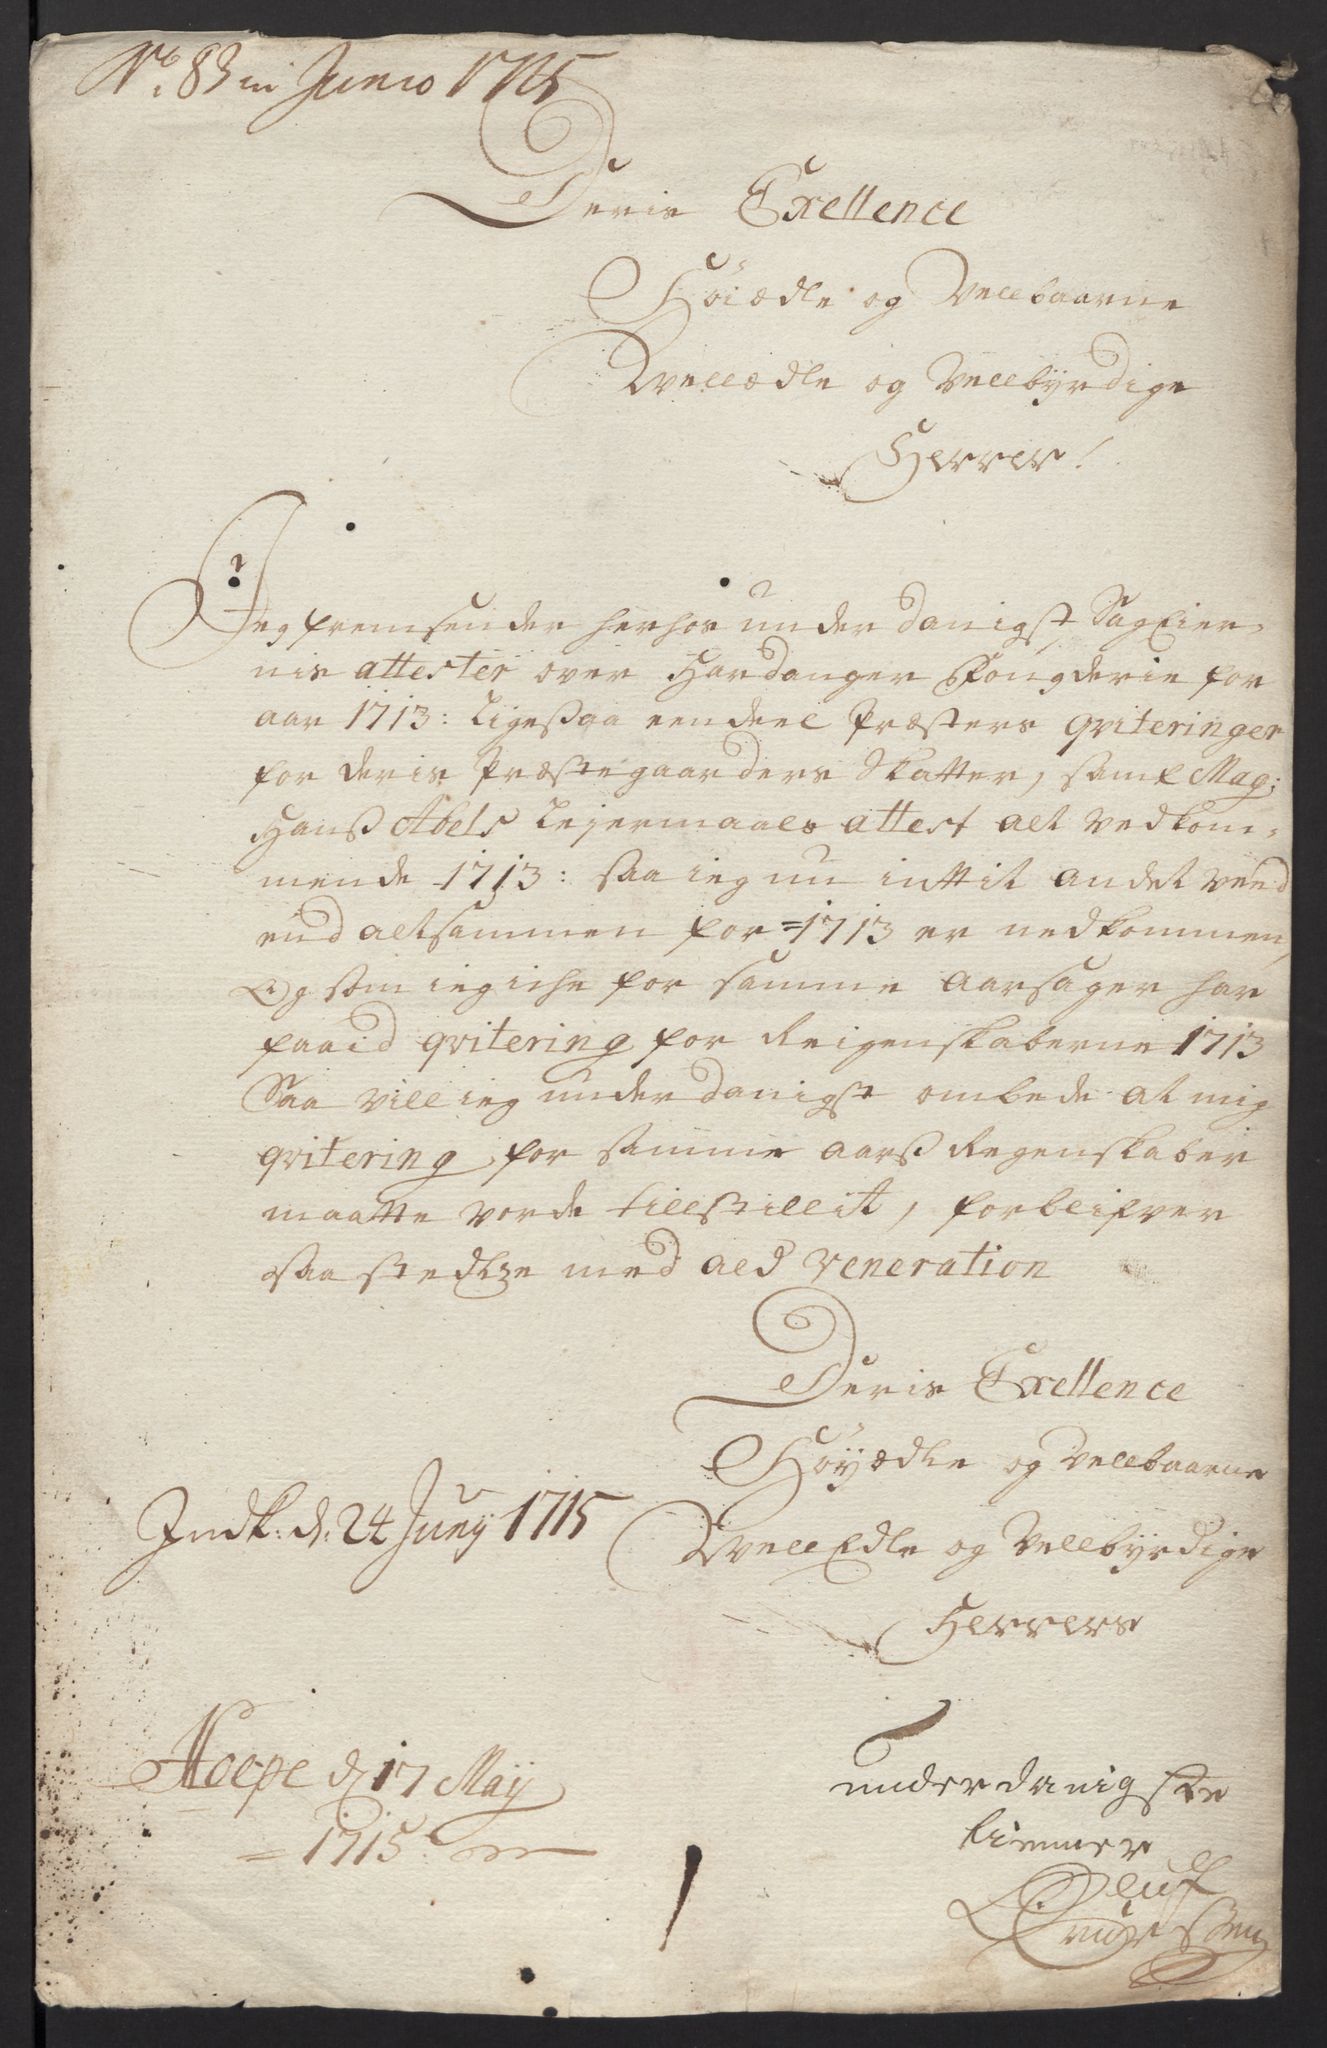 No. 83 in Junio 1715
Deris Exellence
Høiædle og Velbaarne
Velædle og Velbÿrdige
Herrer!
Jeg fremsender herhos underdanigst Sageier-
nis attester over Hardanger Fougderie for
aar 1713: ligesaa een deel Præsters qviteringer
for deris Præstegaarders Skatter, samt Mag:
Hanß Abels Leiermaals attest alt vedkom-
mende 1713: saa ieg nu inttit andet veed
end altsammen for 1713 er nedkommen,
Og som ieg iche for samme aarsager har
faaid qvitering for Reigenskaberne 1713
Saa vill ieg underdanigst ombede at mig
qvitering for samme aarß Regenskaber
maatte vorde tillstillit, forblifver
saa stedtze med all veneration
Deris Exellence
Høÿædle og Velbaarne
Indk: d: 24 Junÿ 1715
VelEdle og Velbÿrdige
Herrers
Hoepe d 17 Maÿ
1715
underdanigste
tienner
Oluf